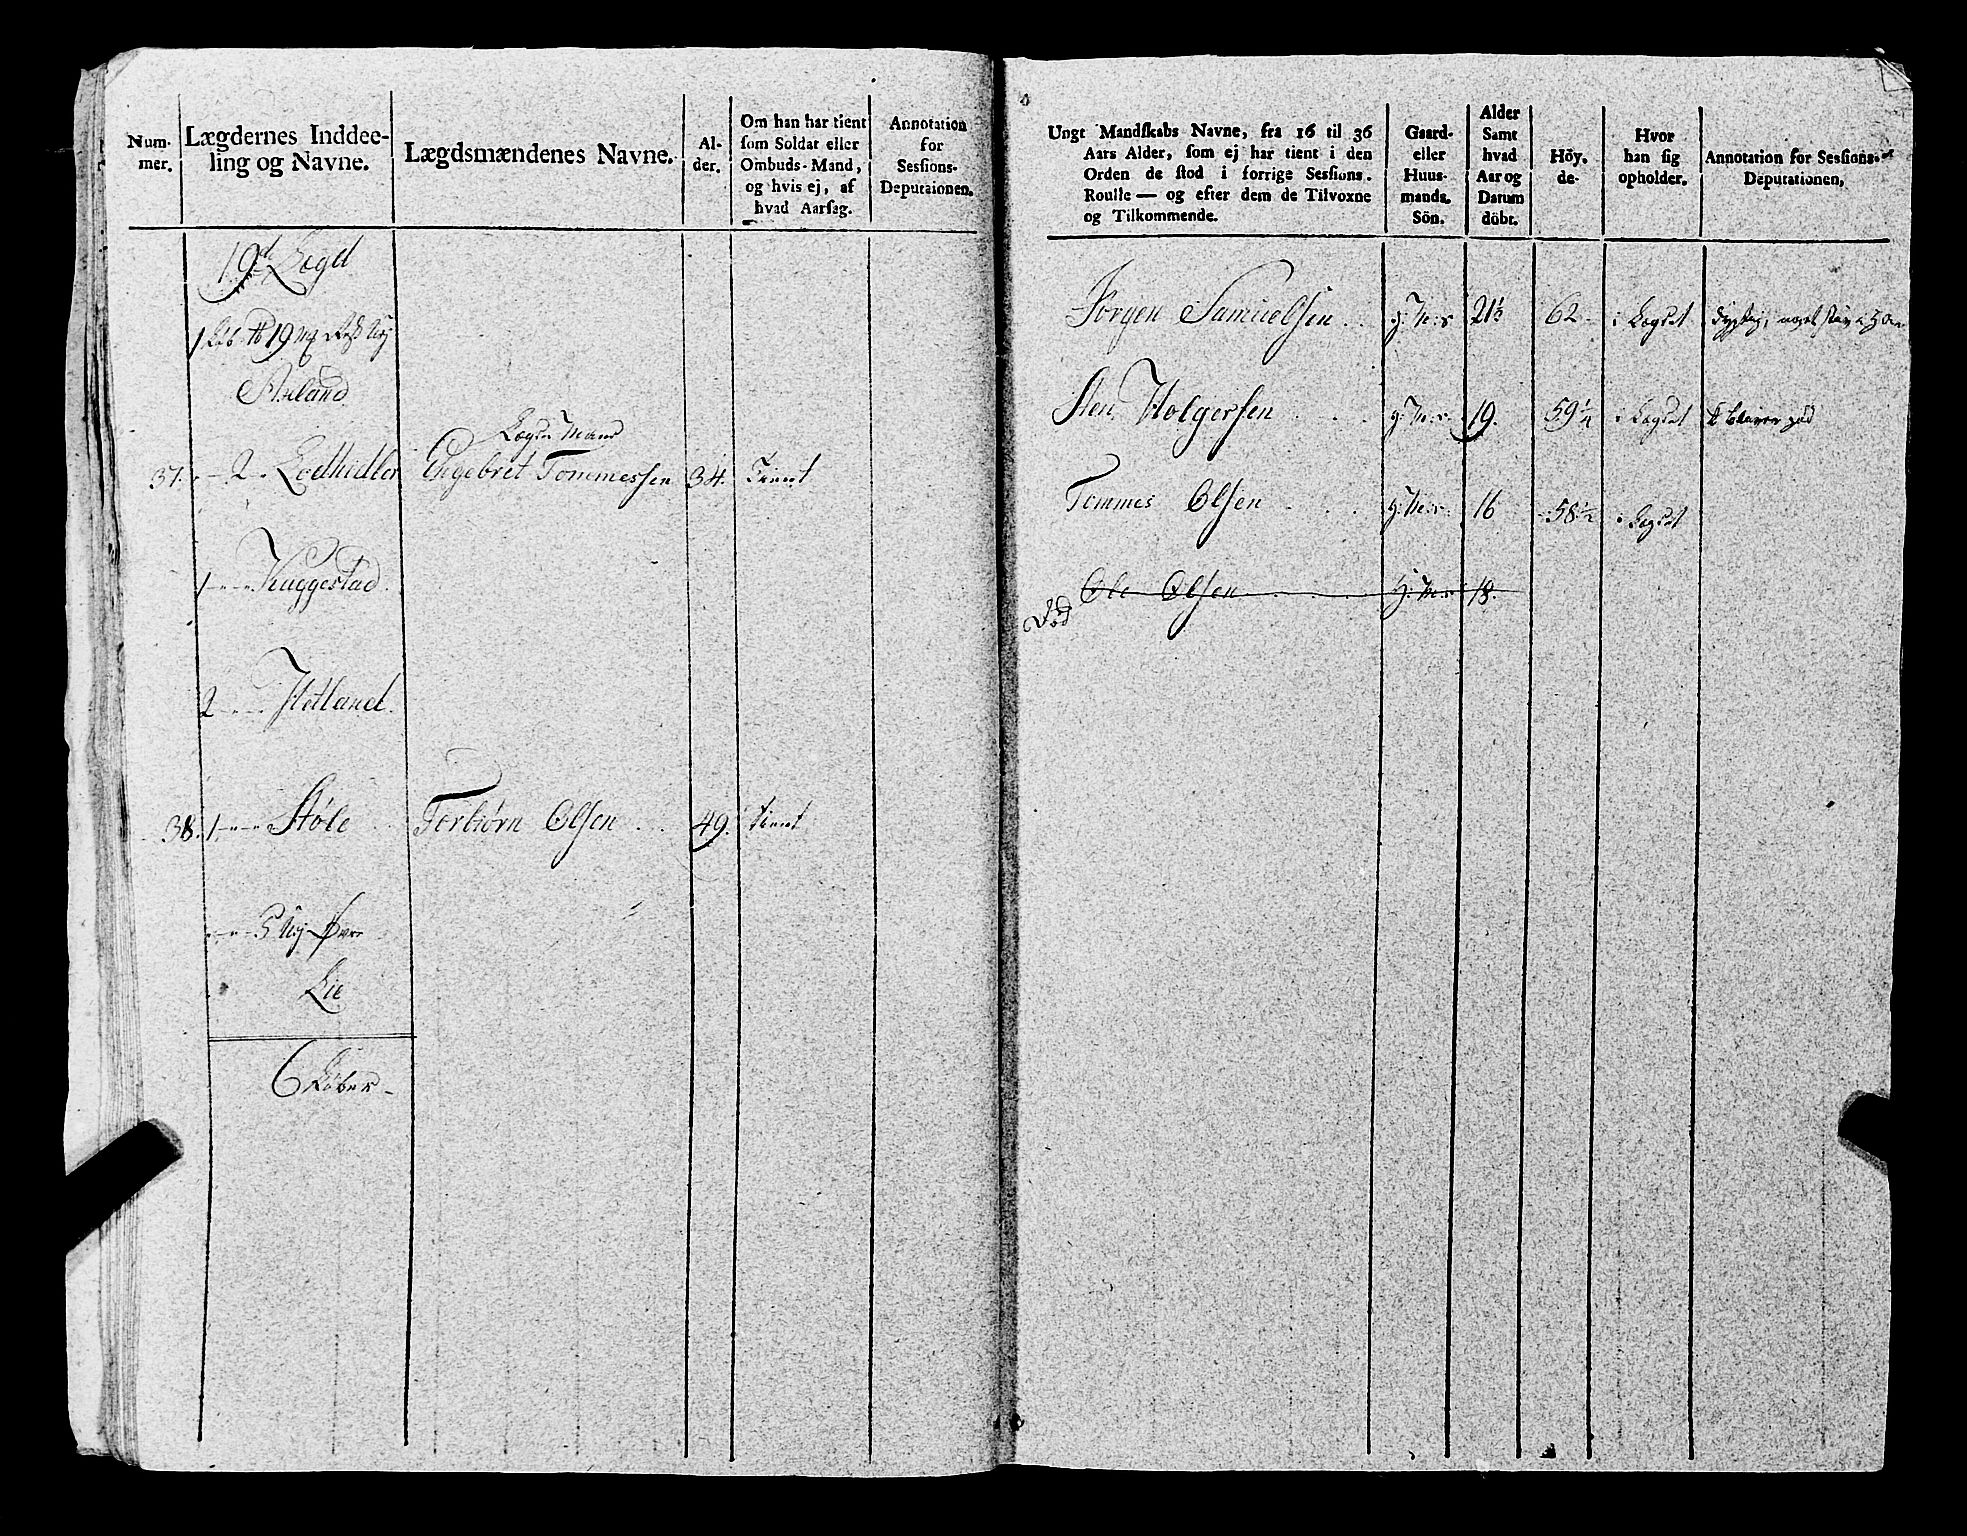 Num-
mer.
Lægdernes Inddee-
ling og Navne.
Lægdsmændenes Navne.
Al-
der.
Om han har tient
som Soldat eller
Ombuds-Mand,
og hvis ej, af
hvad Aarsag.
Annotation
for
Sessions-
Deputaionen.
19d Lægd
1 19
Axland
Lægds Mand
37. 2 Lodhidler Engebret Tommessen 34. Tient
1 Kuggestad
2 Hetland
38. 1 Støle Torbiørn Olsen 49. tient
Øvre
Lie
6 Løber
Ungt Mandskabs Navne, fra 16 til 36
Aars Alder, som ej har tient i den
Orden de stod i forrige Sessions-
Roulle — og efter dem de Tilvoxne
og Tilkommende.
Gaard-
eller
Huus-
mands.
Sön.
Alder
Samt
hvad
Aar og
Datum
döbt.
Höy-
de-
Hvor
han sig
opholder.
Annotation for Sessions-
Deputationen,
Jørgen Samuelsen 21½ 62 i Lægdet
Sten Holgersen 19. 59½ i Lægdet
Tommes Olsen 16 58½ i Lægdet
Ole Olsen 18.
Død